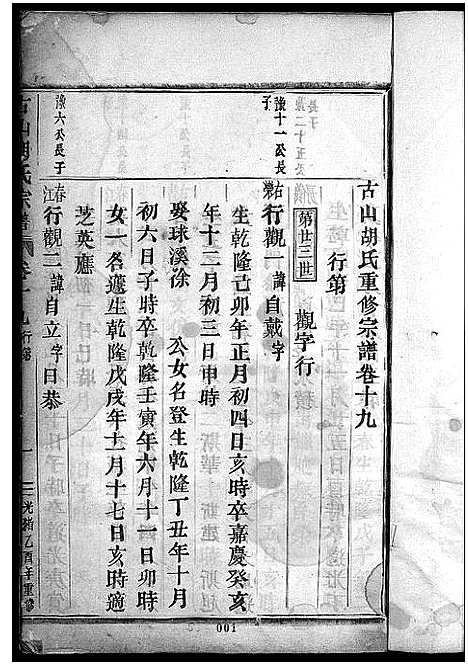 古山胡氏重修宗譜卷十九
行第
第廿三世
觀字行
豫十一公長子
行觀一諱自戴字
生乾隆己卯年正月初四日亥時卒嘉慶癸亥
年十二月初三日申時
娶球溪徐 公女名登生乾隆丁丑年十月
初六日子時卒乾隆壬寅年六月十一日卯時
女一名蘧生乾隆戊戌年十二月十七日亥時適
芝英應
豫六公長子
行觀二諱自立字日恭
光緒乙酉年重修
001